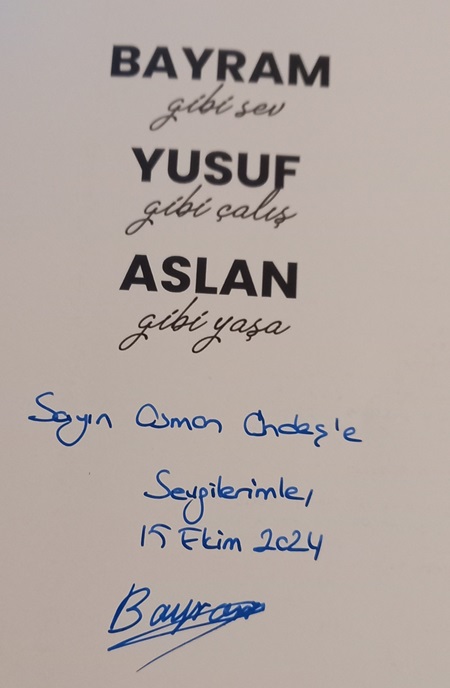 BAYRAM
gibi sev
YUSUF
gibi çalış
ASLAN
gibi yaşa
Sayın Osman Öndeş'e
Sevgilerimle,
15 Ekim 2024
Bayram